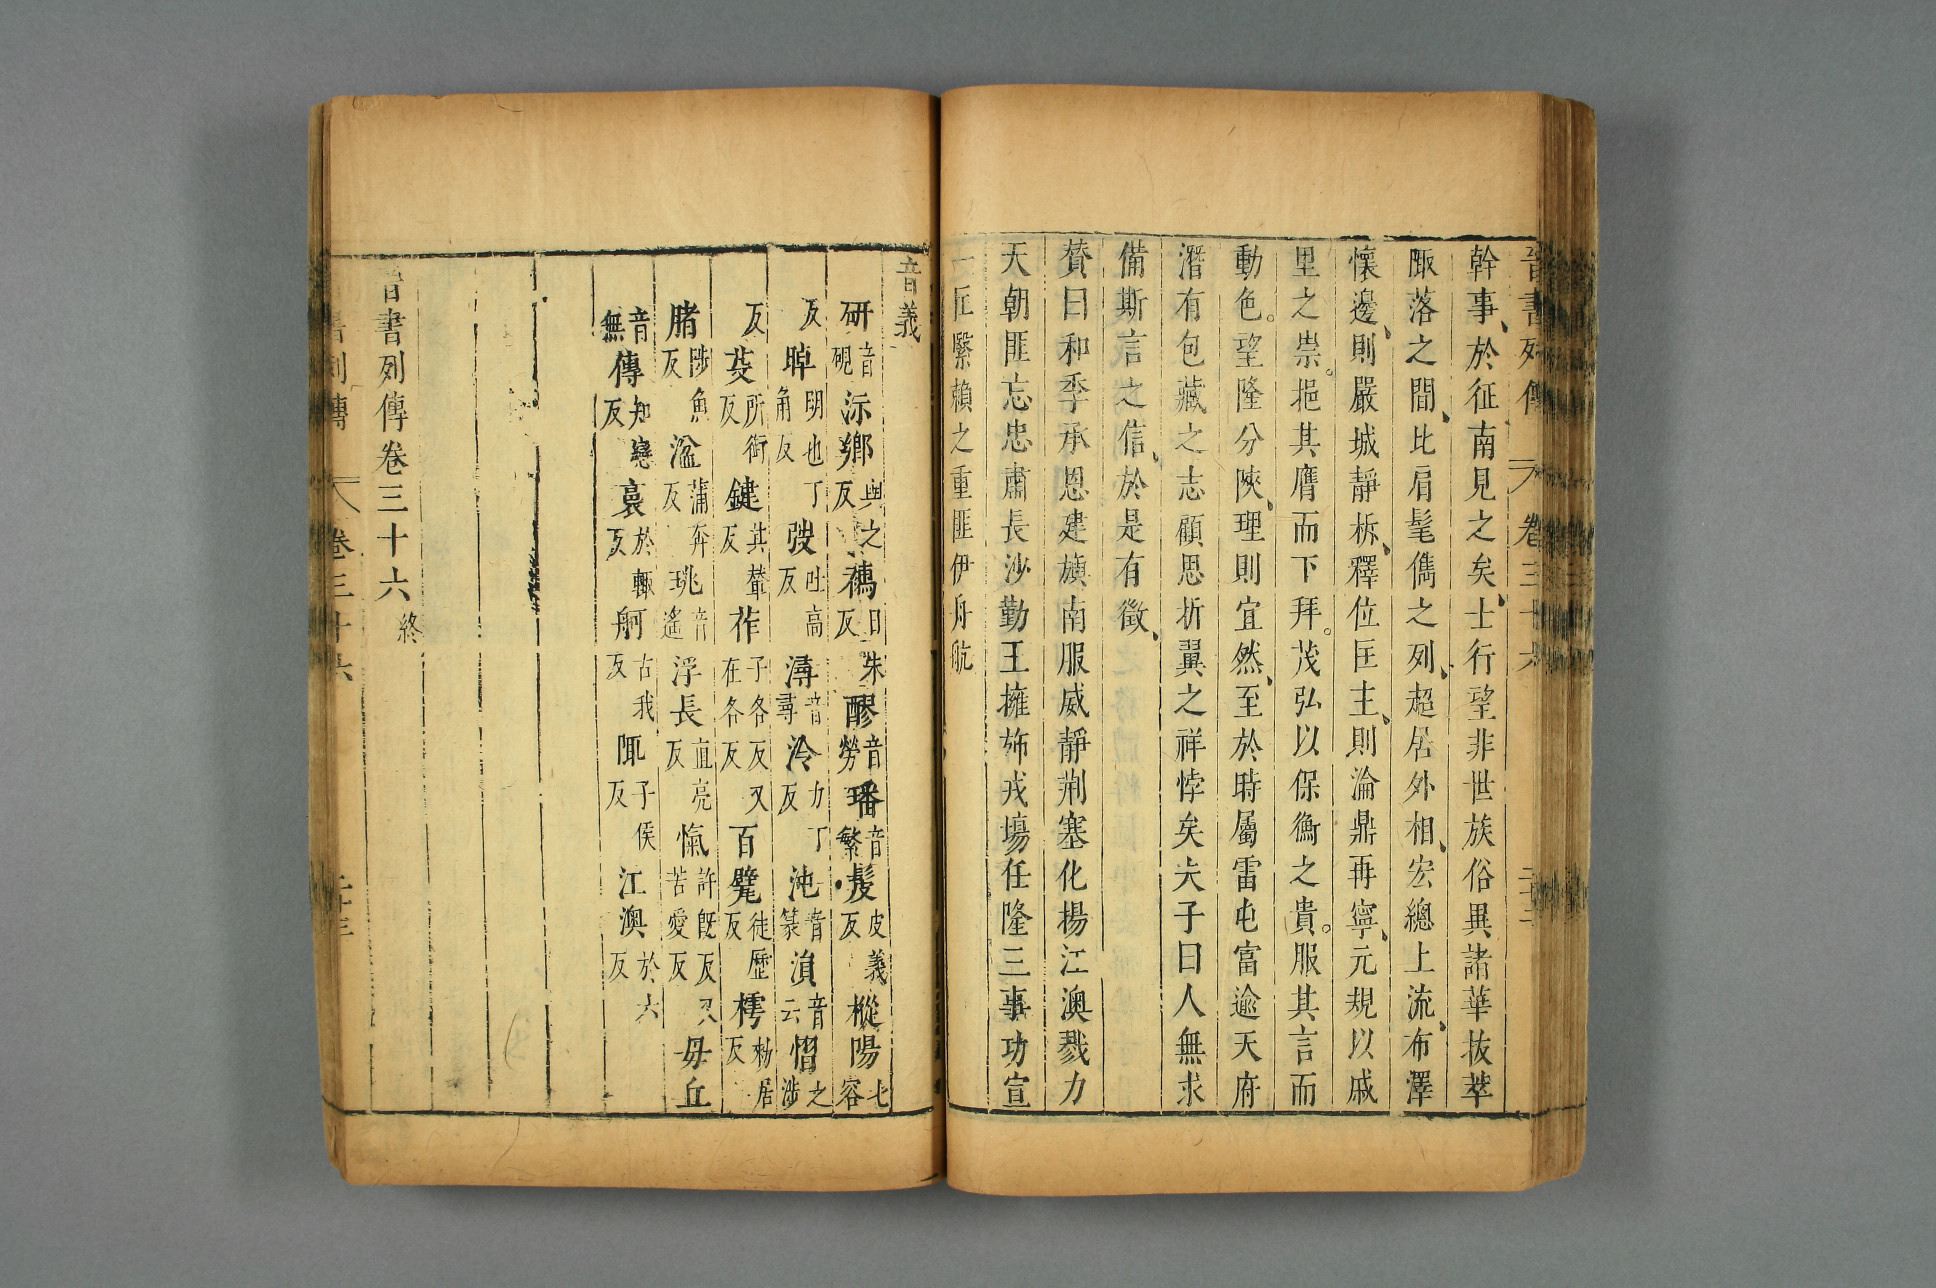 晉書列傳 卷三十六
幹事、於征南見之矣、士行望非世族俗異諸華抜萃
陬落之間、比肩髦儁之列、超居外相、宏總上流、布澤
懷邊、則嚴城靜柝、釋位匡主、則淪鼎再寧、元規以戚
里之崇。挹其膺而下拜。茂弘以保衡之貴。服其言而
動色。望隆分陝、理則宜然、至於時屬雷屯富逾天府
潛有包藏之志顧思折翼之祥悖矣夫子曰人無求
備斯言之信、於是有徵、
贊曰和季承恩建旟南服威靜荆塞化揚江澳戮力
天朝匪忘忠肅長沙勤王擁斾戎場任隆三事功宣
一匡緊賴之重匪伊舟航
音義
研音硯 沶鄉與之反 禱日朱反 醪音勞 璠音繁 髲皮義反 樅陽七容
反 晫明也丁角反 弢吐高反 潯音尋 泠力丁反 沌音篆 溳音云 慴之涉
反 芟所銜反 鍵其輦反 莋子各反又在各反 百甓徒歷反 樗勑居反
賭陟魚反 湓蒲奔反 珧音遙 浮長直亮反 愾許旣反又苦愛反 毋丘
音無 傳知戀反 裒於輒反 舸古我反 陬子侯反 江澳於六反
晉書列傳卷三十六 終
書列傳 卷三十六